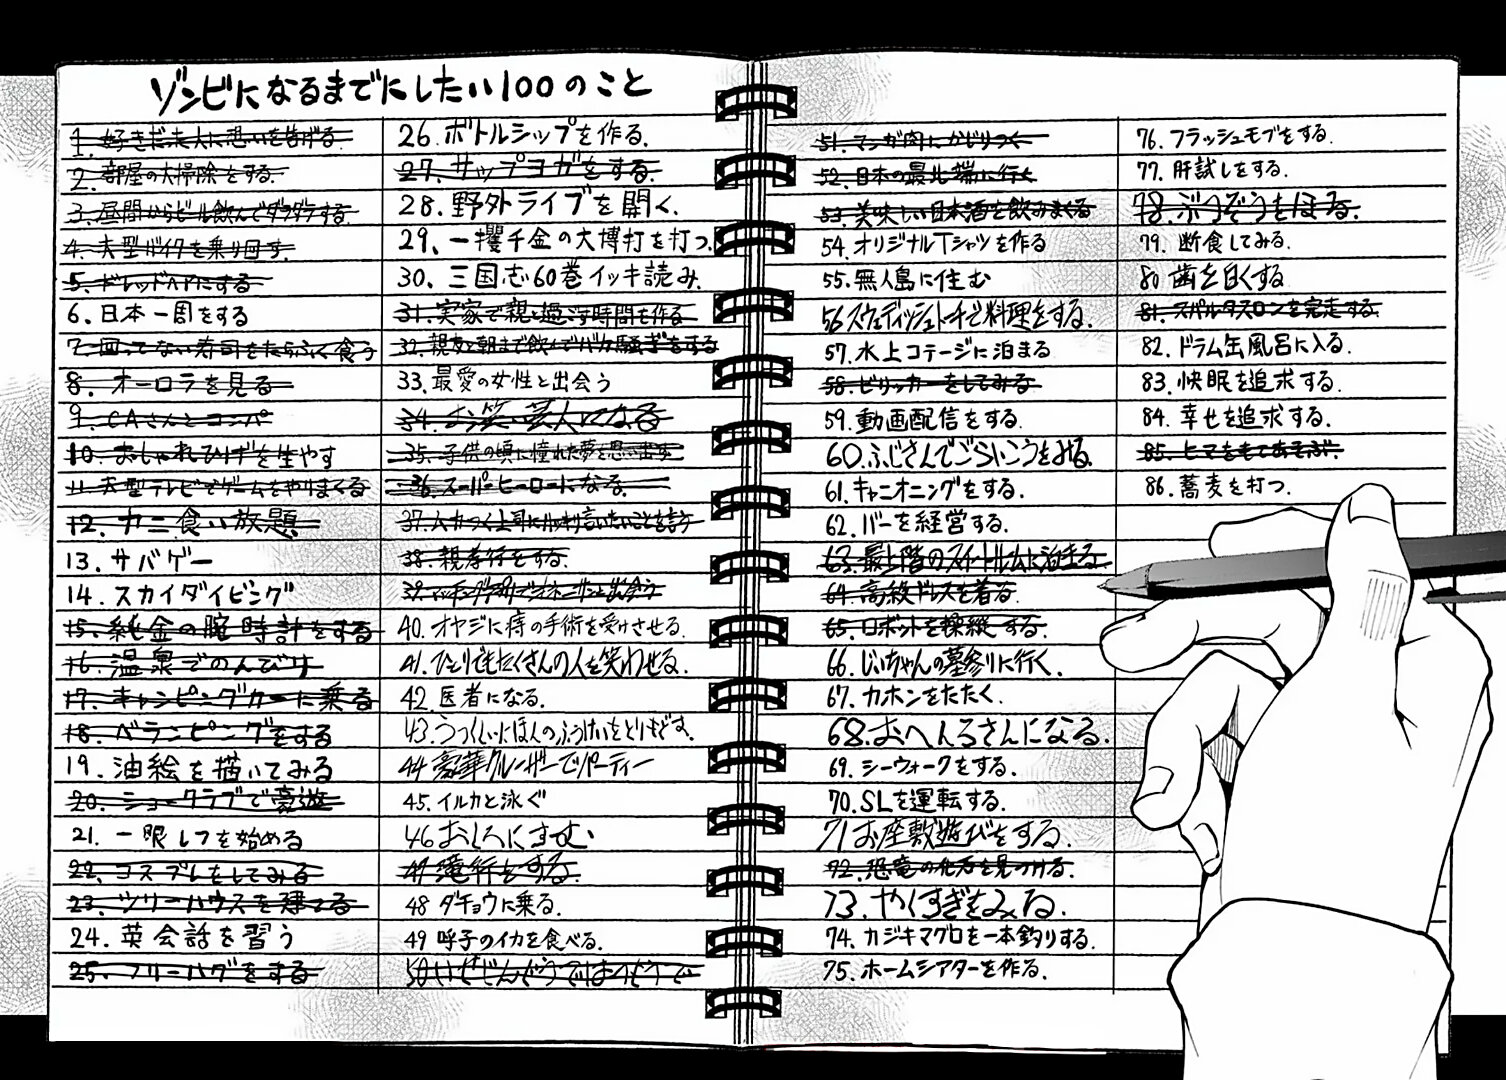 ゾンビになるまでにしたい100のこと
1. 好きだった人に想いを告げる
2. 部屋の大掃除をする.
3. 昼間からビール飲んでダラダラする
4. 大型バイクを乗り回す.
5. ドレッドヘアにする
6. 日本一周をする
7. 回ってない寿司をたらふく食う
8. オーロラを見る
9. CAさんとコンパ
10. おしゃれひげを生やす
11. 大型テレビでゲームをやりまくる
12. カニ食い放題
13. サバゲー
14. スカイダイビング
15. 純金の腕時計をする
16. 温泉でのんびり
17. キャンピングカーに乗る
18. ベランピングをする
19. 油絵を描いてみる
20. ショークラブで豪遊
21. 一眼レフを始める
22. コスプレをしてみる
23. ツリーハウスを建てる
24. 英会話を習う
25. フリーハグをする
26. ボトルシップを作る.
27. サップヨガをする.
28. 野外ライブを開く.
29. 一攫千金の大博打を打つ.
30. 三国志60巻イッキ読み.
31. 実家で親と過ごす時間を作る
32. 親友と朝まで飲んでバカ騒ぎをする
33. 最愛の女性と出会う
34. お笑い芸人になる
35. 子供の頃に憧れた夢を思い出す
36. スーパーヒーローになる.
37. ムカつく上司にハッキリ言いたいことを言う
38. 親孝行をする.
39. マッチングアプリで
40. オヤジに痔の手術を受けさせる.
41. ひとりでもたくさんの人を笑わせる.
42. 医者になる.
43. うつくしいにほんのふうけいをとりもどす.
44 豪華クルーザーでパーティー
45. イルカと泳ぐ
46 おしろにすむ
47 滝行をする.
48 ダチョウに乗る.
49 呼子のイカを食べる.
50
51. マンガ肉にかじりつく
52. 日本の最北端に行く
53. 美味しい日本酒を飲みまくる
54. オリジナルTシャツを作る
55. 無人島に住む
56 スウェディッシュトーチで料理をする.
57. 水上コテージに泊まる
58. ビリッカーをしてみる
59. 動画配信をする.
60. ふじさんでごらいこうをみる.
61. キャニオニングをする.
62. バーを経営する.
63. 最上階のスイートルームに泊まる
64. 高級ドレスを着る
65. ロボットを操縦する.
66. じいちゃんの墓参りに行く.
67. カホンをたたく.
68. おへんろさんになる.
69. シーウォークをする.
70. SLを運転する.
71 お座敷遊びをする.
72. 恐竜の化石を見つける.
73. やくすぎをみる.
74. カジキマグロを一本釣りする.
75. ホームシアターを作る.
76. フラッシュモブをする.
77. 肝試しをする.
78. ぶつぞうをほる.
79. 断食してみる.
80 歯を白くする
81. スパルタスロンを完走する.
82. ドラム缶風呂に入る.
83. 快眠を追求する.
84. 幸せを追求する.
85. ヒマをもてあそぶ.
86. 蕎麦を打つ.